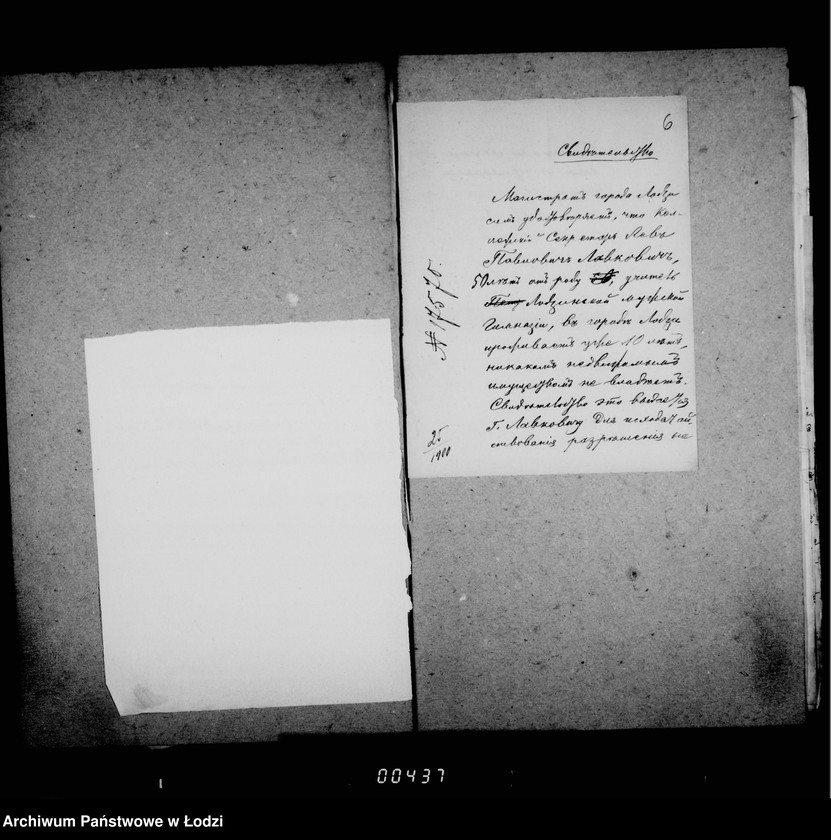 6
Свидѣтельство
Магистратъ города Лодзи
симъ удостовѣряетъ, что Кол-
лежскій Секретарь Левъ
Павловичъ Лавковичъ,
50 лѣтъ отъ роду, учитель
Лодзинской мужской
Гимназіи, въ городѣ Лодзи
проживаетъ уже 10 лѣтъ,
никакимъ недвижимымъ
имуществомъ не владѣетъ.
Свидѣтельство это выдается
Г. Лавковичу для исходатай
ствованія разрѣшенія на
№ 17575.
25/1900
00437
Archiwum Państwowe w Łodzi